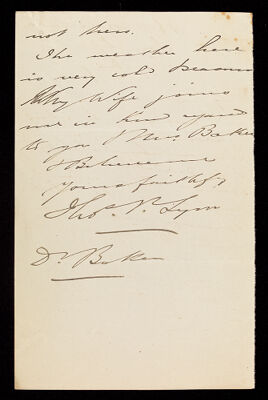 not hers.
The weather here
is very cold
My Wife joins
me in kind regards
to you & Mrs. Baker
& Believe me
Yours faithfully
Thos. P. Lyon
Dr Baker